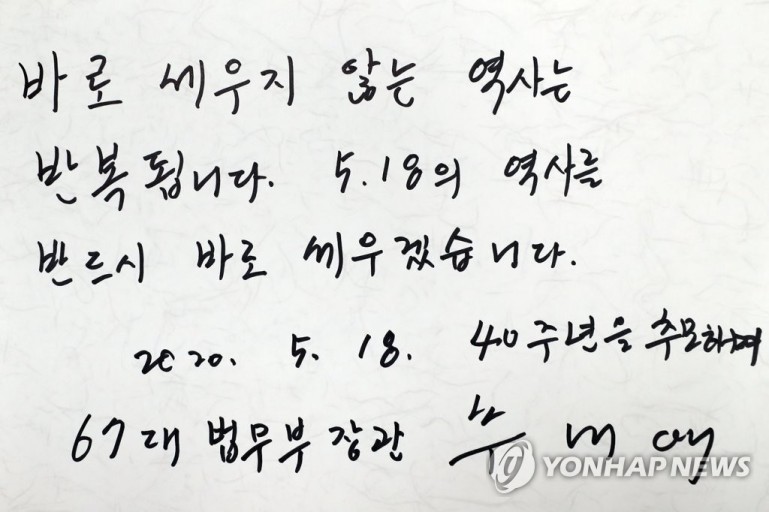 바로 세우지 않는 역사는
반복됩니다. 5.18의 역사를
반드시 바로 세우겠습니다.
2020. 5. 18. 40주년을 추모하며
67대 법무부 장관 추미애
YONHAP NEWS